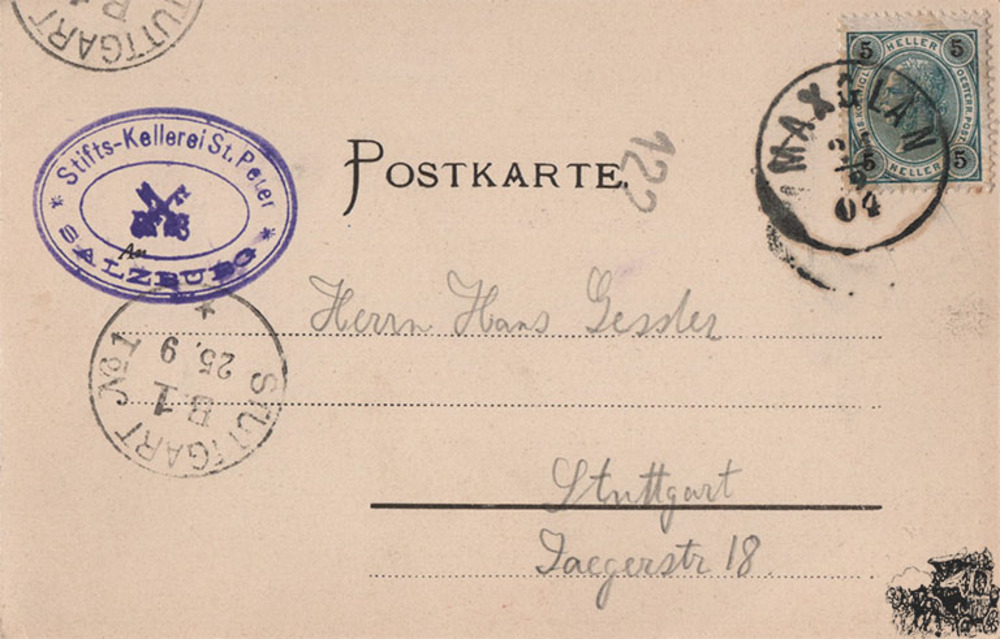 STUTTGART
5 HELLER 5
OESTERR. POST
5 HELLER 5
MAXGLAN
04
Stifts-Kellerei St. Peter
* SALZBURG *
POSTKARTE.
122
An
Herrn Hans Gessler
STUTTGART No 1
B.1
25. 9
Stuttgart
Jaegerstr 18.